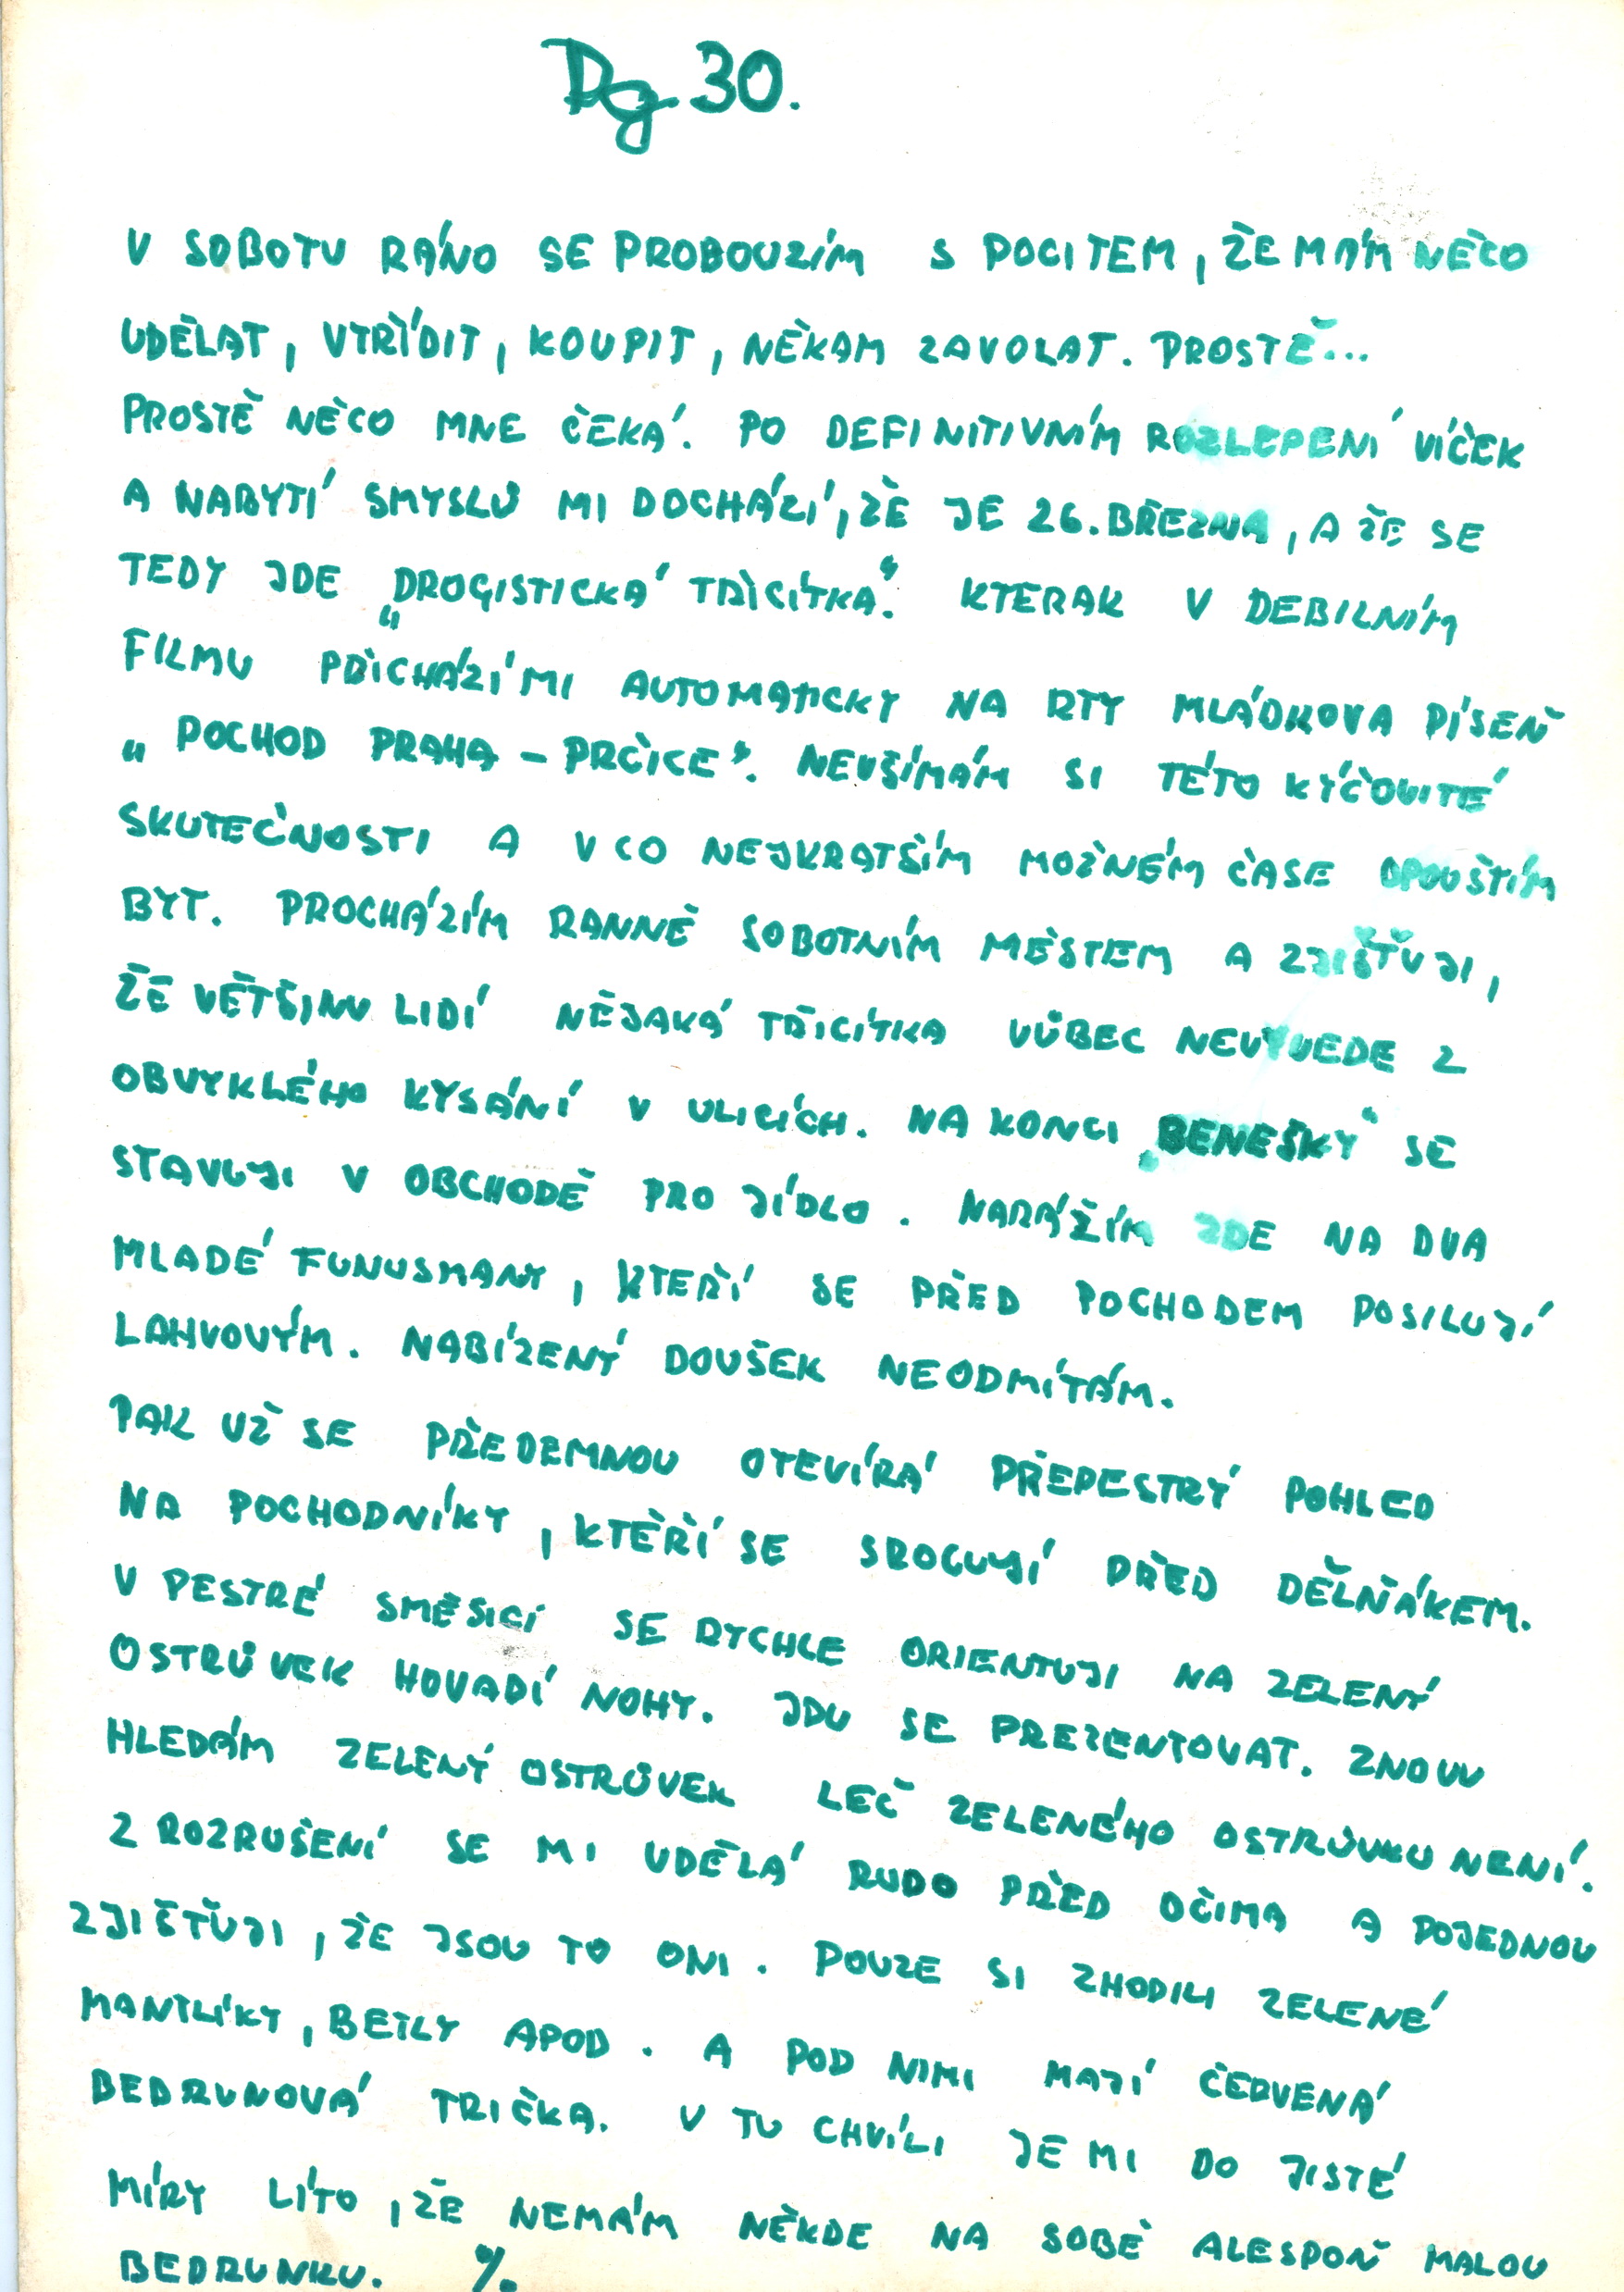 Dg 30.
V SOBOTU RÁNO SE PROBOUZÍM S POCITEM, ŽE MÁM NĚCO
UDĚLAT, VTŘÍDIT, KOUPIT, NĚKAM ZAVOLAT. PROSTĚ...
PROSTĚ NĚCO MNE ČEKÁ. PO DEFINITIVNÍM ROZLEPENÍ VÍČEK
A NABYTÍ SMYSLŮ MI DOCHÁZÍ, ŽE JE 26. BŘEZNA, A ŽE SE
TEDY JDE „DROGISTICKÁ TŘICÍTKA“. KTERAK V DEBILNÍM
FILMU PŘICHÁZÍ MI AUTOMATICKY NA RTY MLÁDKOVA PÍSEŇ
„POCHOD PRAHA – PRČICE“. NEVŠÍMÁM SI TÉTO KÝČOVITÉ
SKUTEČNOSTI A V CO NEJKRATŠÍM MOŽNÉM ČASE OPOUŠTÍM
BYT. PROCHÁZÍM RANNĚ SOBOTNÍM MĚSTEM A ZJIŠŤUJI,
ŽE VĚTŠINU LIDÍ NĚJAKÁ TŘICÍTKA VŮBEC NEVYVEDE Z
OBVYKLÉHO KYSÁNÍ V ULICÍCH. NA KONCI „BENEŠKY“ SE
STAVUJI V OBCHODĚ PRO JÍDLO. NARÁŽÍM ZDE NA DVA
MLADÉ FUNUSMANY, KTEŘÍ SE PŘED POCHODEM POSILUJÍ
LAHVOVÝM. NABÍZENÝ DOUŠEK NEODMÍTÁM.
PAK UŽ SE PŘEDEMNOU OTEVÍRÁ PŘEPESTRÝ POHLED
NA POCHODNÍKY, KTEŘÍ SE SROCUJÍ PŘED DĚLŇÁKEM.
V PESTRÉ SMĚSICI SE RYCHLE ORIENTUJI NA ZELENÝ
OSTRŮVEK HOVADÍ NOHY. JDU SE PREZENTOVAT. ZNOVU
HLEDÁM ZELENÝ OSTRŮVEK LEČ ZELENÉHO OSTRŮVKU NENÍ.
Z ROZRUŠENÍ SE MI UDĚLÁ RUDO PŘED OČIMA A POJEDNOU
ZJIŠŤUJI, ŽE JSOU TO ONI. POUZE SI ZHODILI ZELENÉ
MANTLÍKY, BETLY APOD. A POD NIMI MAJÍ ČERVENÁ
BEDRUNOVÁ TRIČKA. V TU CHVÍLI JE MI DO JISTÉ
MÍRY LÍTO, ŽE NEMÁM NĚKDE NA SOBĚ ALESPOŇ MALOU
BEDRUNKU. %.